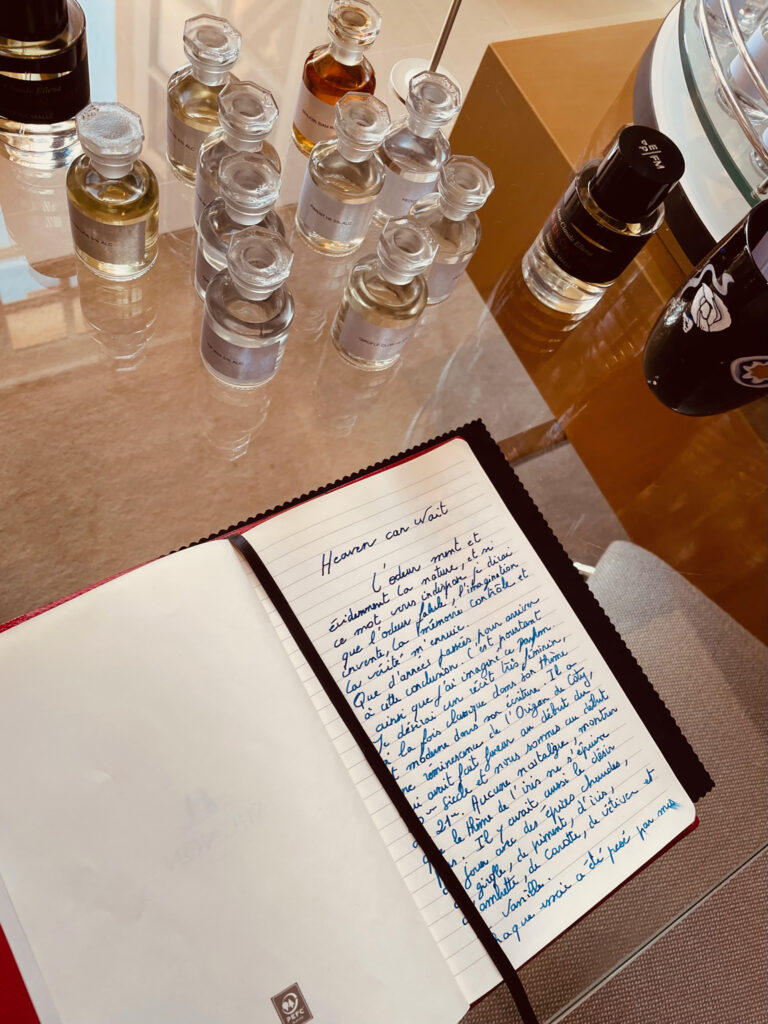 Claude Ellena
PIMENT HE 5% ALC
GIROFLE CLOU HE
5% ALC
5% ALC
E P
d FM
Claude Ellena
Heaven can Wait
L'odeur ment et
évidemment la nature, et si
ce mot vous indispose, je dirai
que l'odeur fabule, l'imagination
invente, la mémoire contrôle et
la vérité m'ennuie.
Que d'années passées pour arriver
à cette conclusion. C'est pourtant
ainsi que j'ai imaginé ce parfum.
Je désirais un récit très féminin,
à la fois classique dans son thème
et moderne dans son écriture. Il a
une réminiscence de l'Origan de Coty,
qui avait fait fureur au début du
siècle et nous sommes au début
21e. Aucune nostalgie, montrer
que le thème de l'iris ne s'épuise
pas. Il y avait aussi le désir
jouer avec des épices chaudes,
girofle, de piment, d'iris,
d'ambrette, de carotte, de vétiver et
vanille.
Chaque essai a été pesé par mes
PEFC